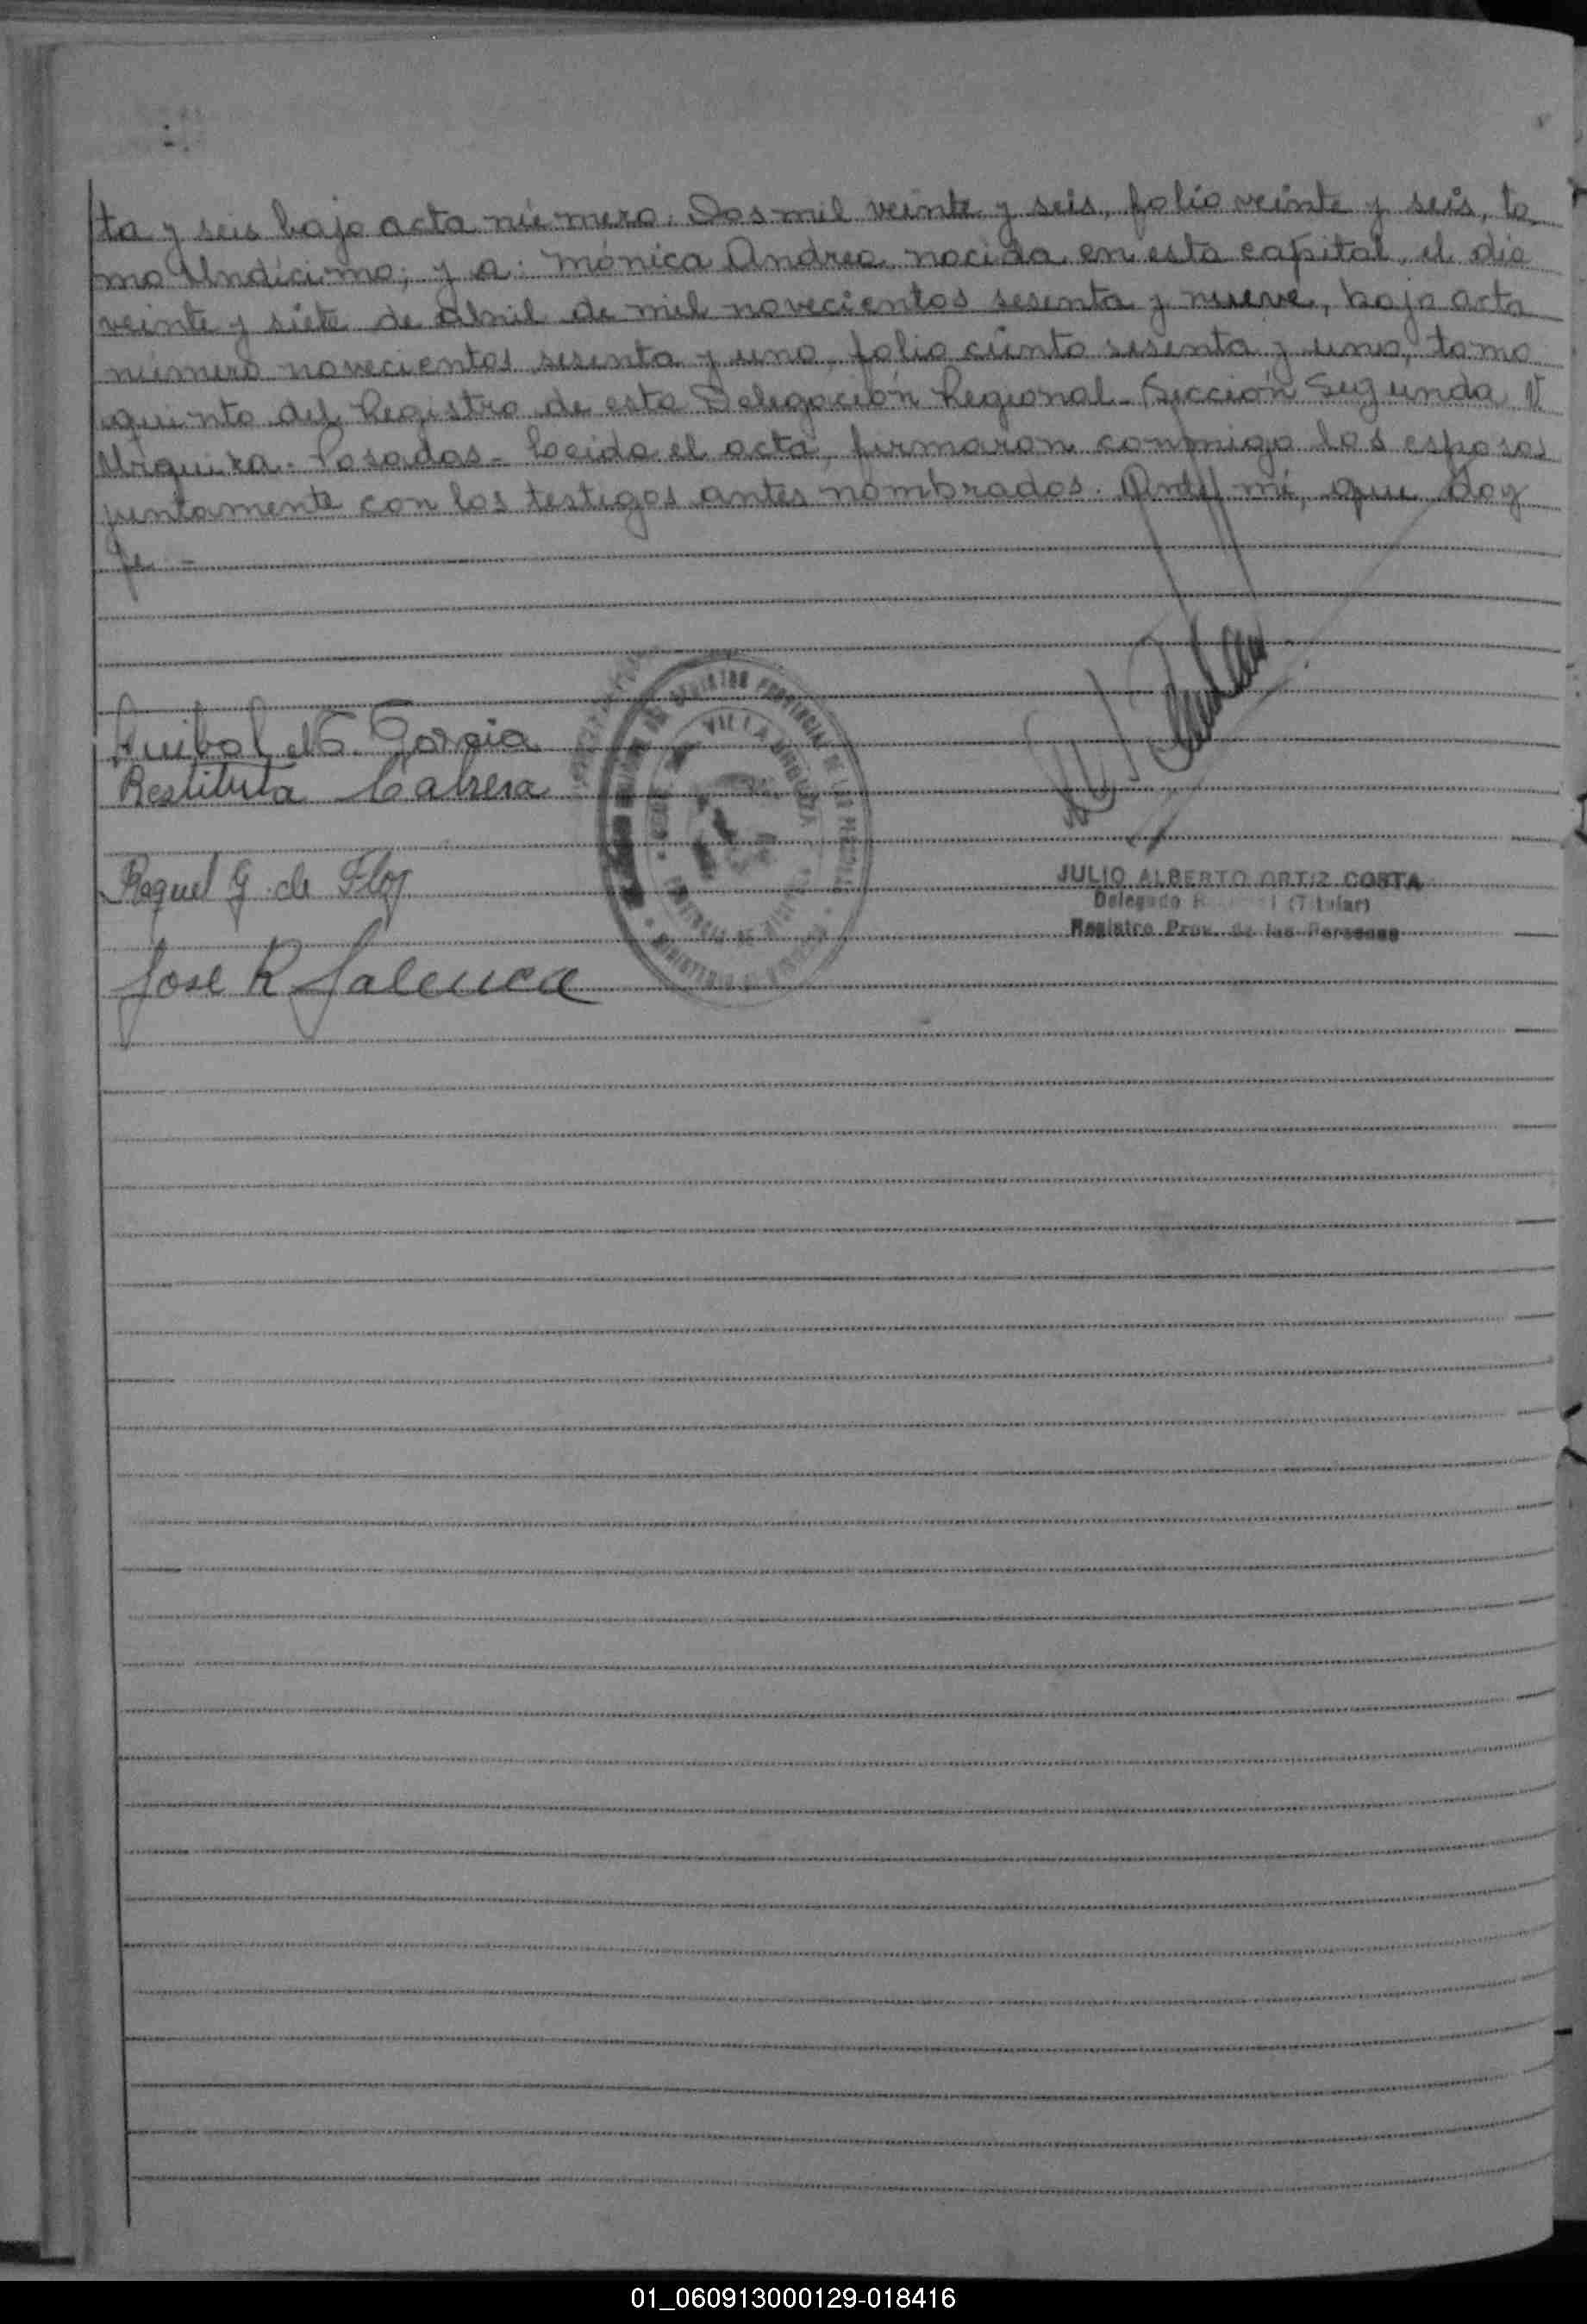 ta y seis bajo acta número: Dos mil veinte y seis, folio veinte y seis, to
mo Undécimo; y a: Mónica Andrea nacida en esta capital, el día
veinte y siete de abril de mil novecientos sesenta y nueve, bajo acta
número novecientos sesenta y uno, folio ciento sesenta y uno, tomo
quinto del Registro de esta Delegación Regional - Sección Segunda V.
Urquiza - Posadas - Leída el acta, firmaron conmigo los esposos
juntamente con los testigos antes nombrados. Ante mí, que doy
fe -
Anibal García
Restituta Cabrera
Raquel G. de
José R
REGISTRO PROVINCIAL DE LAS PERSONAS
VILLA URQUIZA
JULIO ALBERTO ORTIZ COSTA
Delegado (Titular)
Registro Prov. de las Personas
01_060913000129-018416